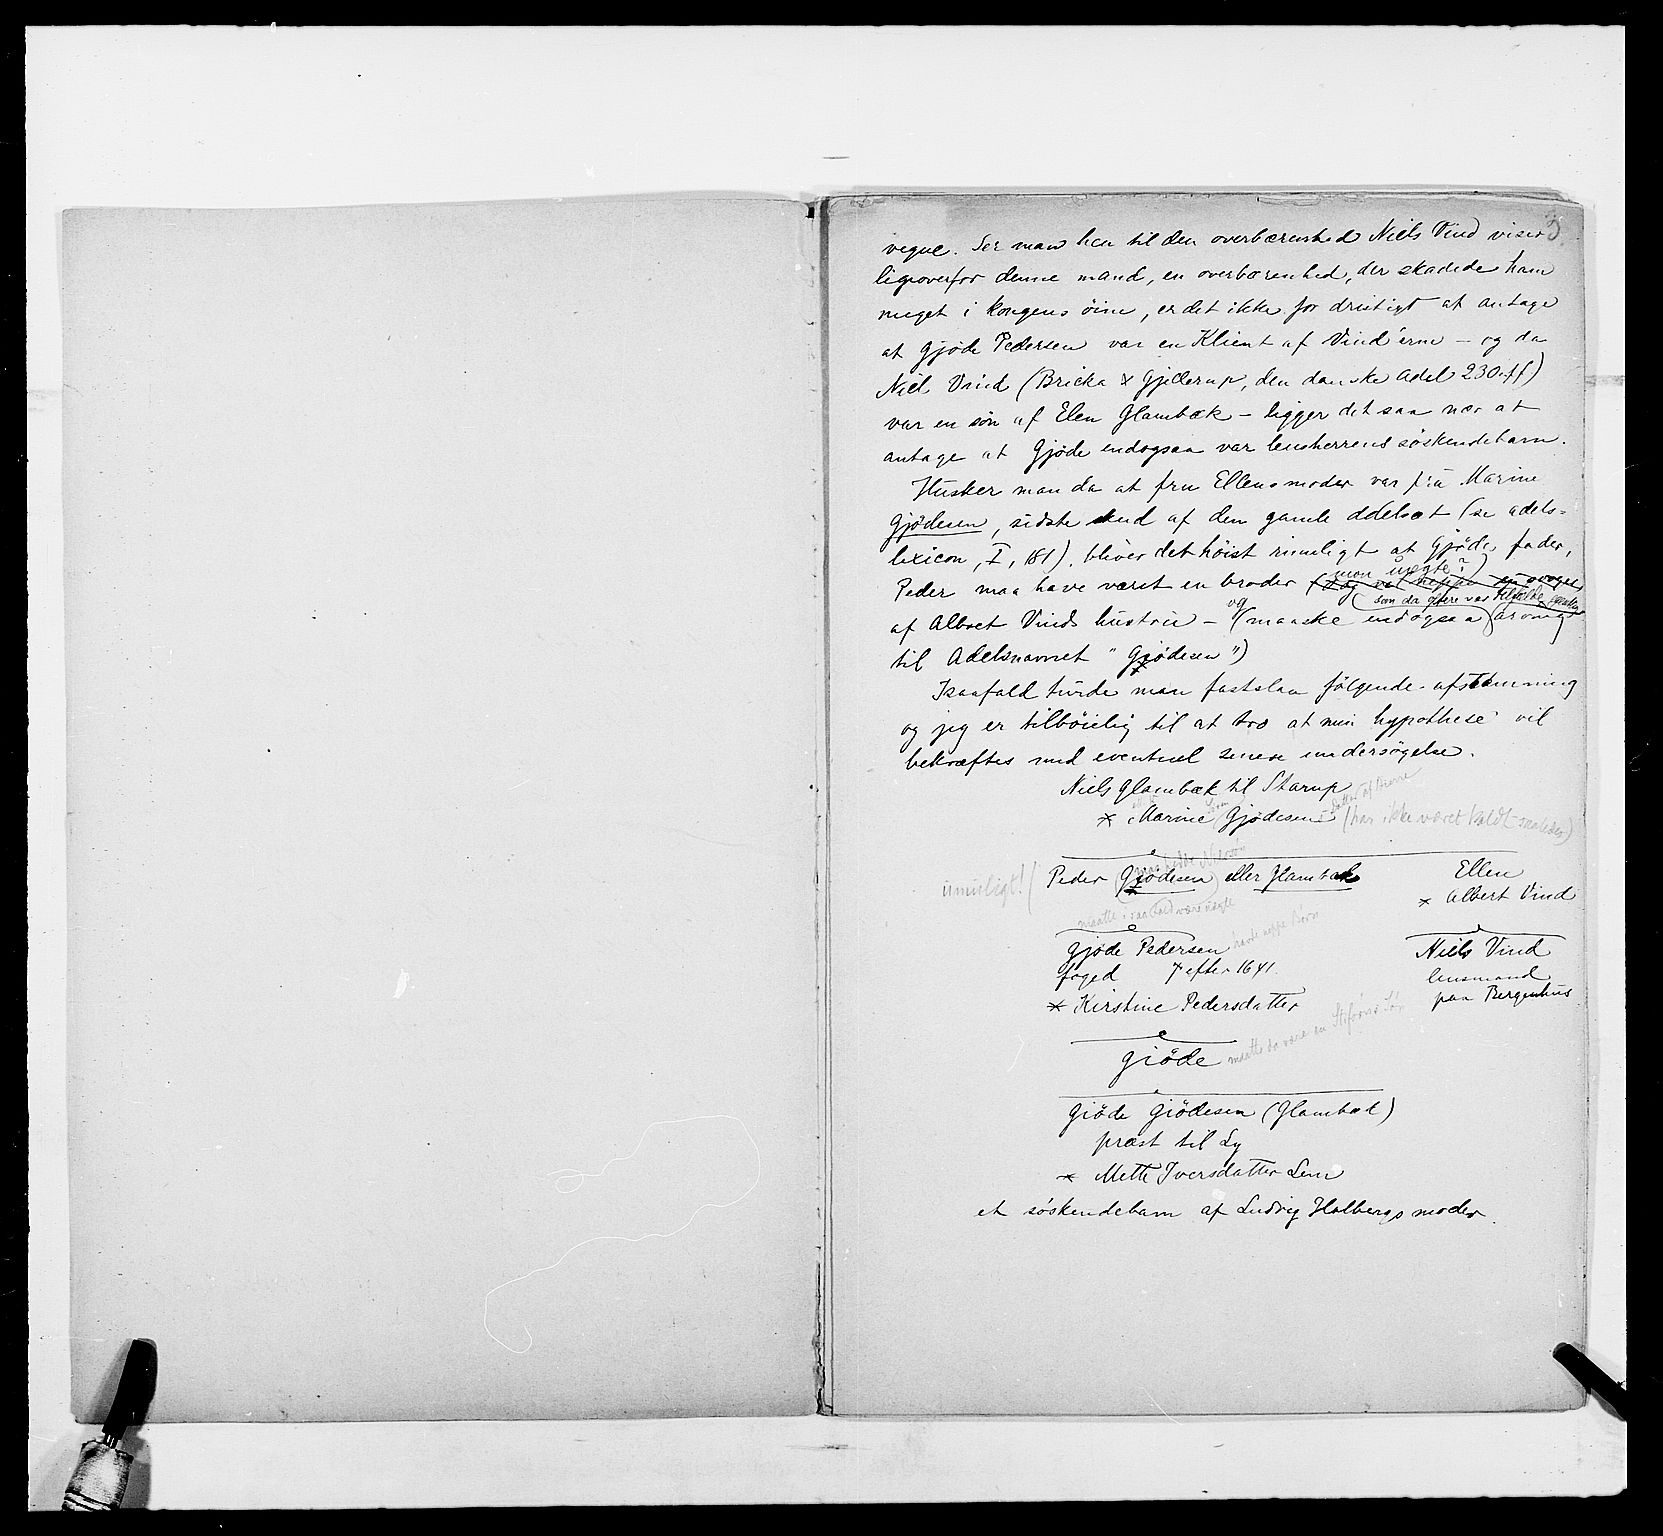 3
vegne. Ser man hen til den overbærenhed Niels Vind viser
ligeoverfor denne mand, en overbærenhed, der skadede ham
meget i kongens öine, er det ikke for dristigt at antage
at Gjöde Pedersen var en Klient af Vind'erne – og da
Niels Vind (Bricka & Gjellerup, den danske Adel 230.ff)
var en sön af Elen Glambæk – ligger det saa nær at
antage at Gjöde endogsaa var lensherrens söskendebarn.
Husker man da at fru Ellens moder var fru Marine
Gjödesen, sidste skud af den gamle adelsæt (se adels=
lexicon, I, 181), bliver det höist rimeligt at Gjödes fader,
mon uægte?)
Peder maa have været en broder
(som da ofte var tilfælde
af Albret Vinds hustru – og (maaske endogsaa arving
til Adelsnavnet "Gjödesen")
Isaafald turde man fastslaa fölgende afstamning
og jeg er tilböielig til at tro at min hypothese vil
bekræftes med eventuel senere undersögelse.
Niels Glambæk til Starup
* Marine Gjödesen (har ikke været kaldt saaledes)
datter af
umuligt! ( Peder (Gjödesen) eller Glambæk
Ellen
* Albert Vind
maatte i saa fald være uægte
Gjöde Pedersen havde neppe Börn
foged † efter 1641.
* Kirstine Pedersdatter
Niels Vind
lensmand
paa Bergenhus
Giöde maatte da være en
Giöde Giödesen (Glambæk)
præst til Ly
* Mette Iversdatter Lem
et söskendebarn af Ludvig Holbergs moder.